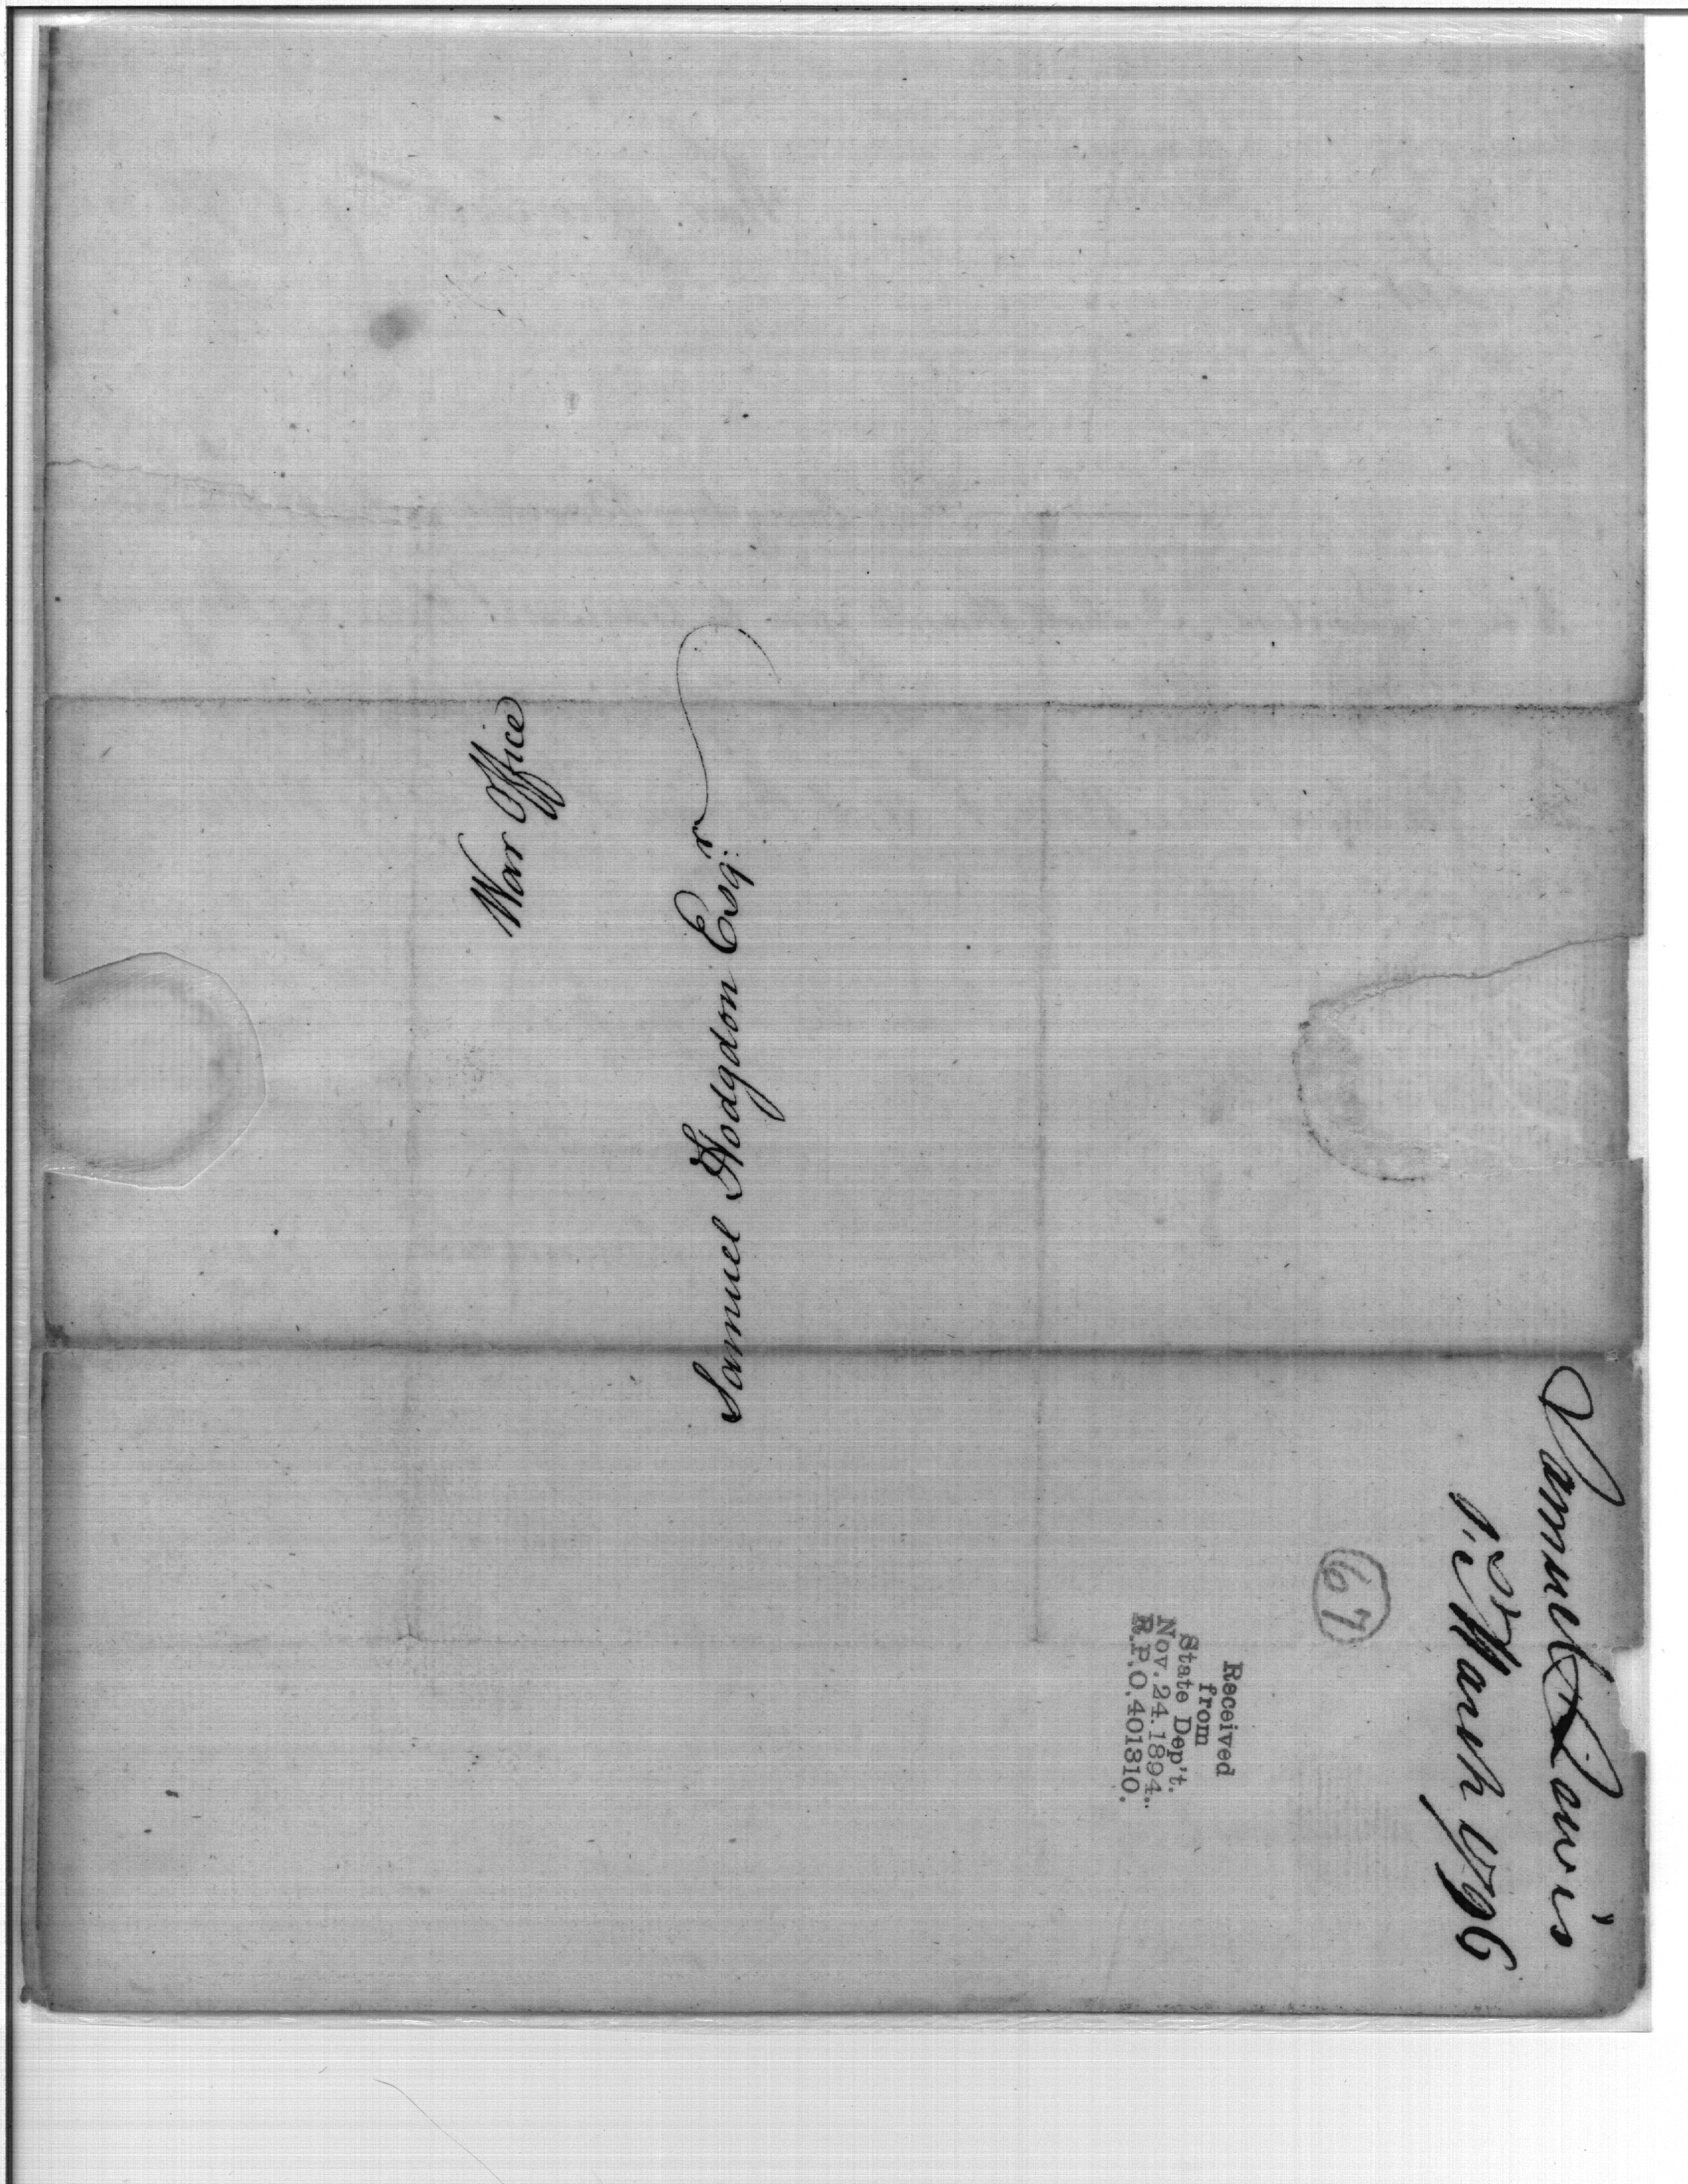 War Office
Samuel Hodgdon Esqr.
Samuel Lewis
1st March 1796
67
Received
from
State Dep't.
Nov. 24. 1894.
R.P.O. 401310.